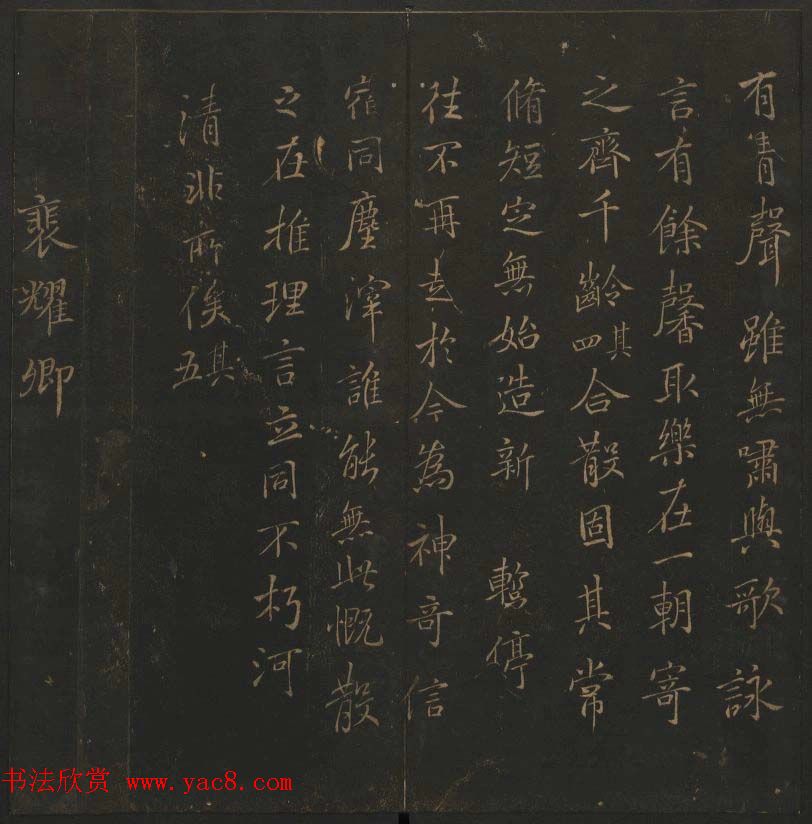 有青聲雖無嘯與歌詠
言有餘馨取樂在一朝寄
之齊千齡其四合散固其常
脩短定無始造新 暫停
往不再起於今為神奇信
宿同塵滓誰能無此慨散
之在推理言立同不朽河
清非所俟其五
裴耀卿
书法欣赏 www.yac8.com